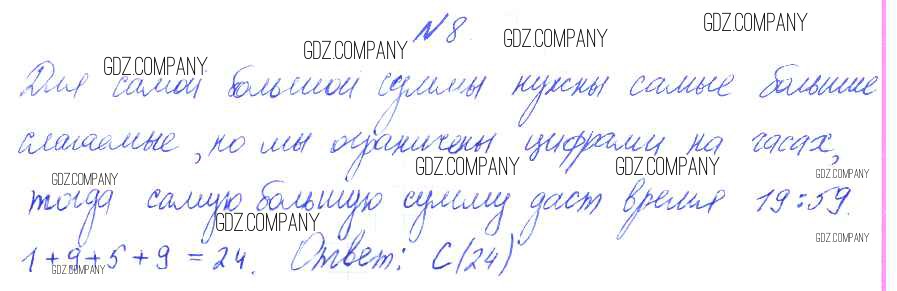 № 8.
Для самой большой суммы нужны самые большие
слагаемые, но мы ограничены цифрами на часах,
тогда самую большую сумму даст время 19:59.
1+9+5+9 = 24. Ответ: C(24)
GDZ.COMPANY
GDZ.COMPANY
GDZ.COMPANY
GDZ.COMPANY
GDZ.COMPANY
GDZ.COMPANY
GDZ.COMPANY
GDZ.COMPANY
GDZ.COMPANY
GDZ.COMPANY
GDZ.COMPANY